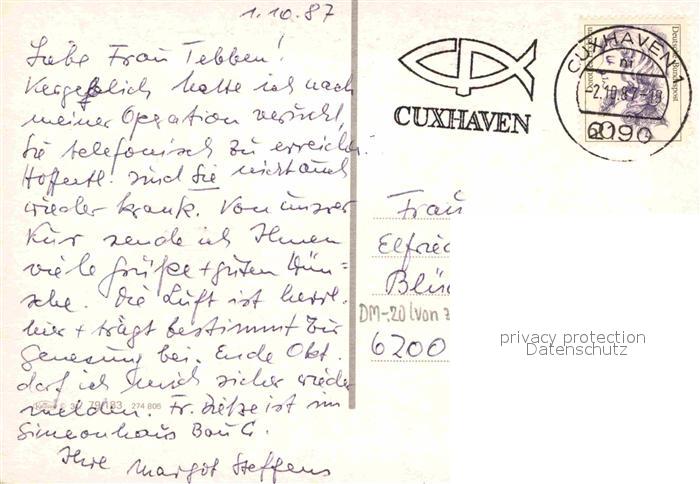 1.10.87
Liebe Frau Tebben!
Vergeblich hatte ich nach
meiner Operation versucht,
Sie telefonisch zu erreichen.
Hoffentl. sind Sie nicht auch
wieder krank. Von unserer
Kur sende ich Ihnen
viele Grüße + guten Wün=
sche. Die Luft ist herrl.
hier + trägt bestimmt zur
Genesung bei. Ende Okt.
darf ich mich sicher wieder
melden. Fr. ist im
Simeonhaus Bau G.
Ihre Margot Steffens
79/183 274 806
CUXHAVEN
CUXHAVEN
-2.10.87-18
2190
Deutsche Bundespost
60
Frau
Elfried
Blü
DM-.20 (von
6200
privacy protection
Datenschutz